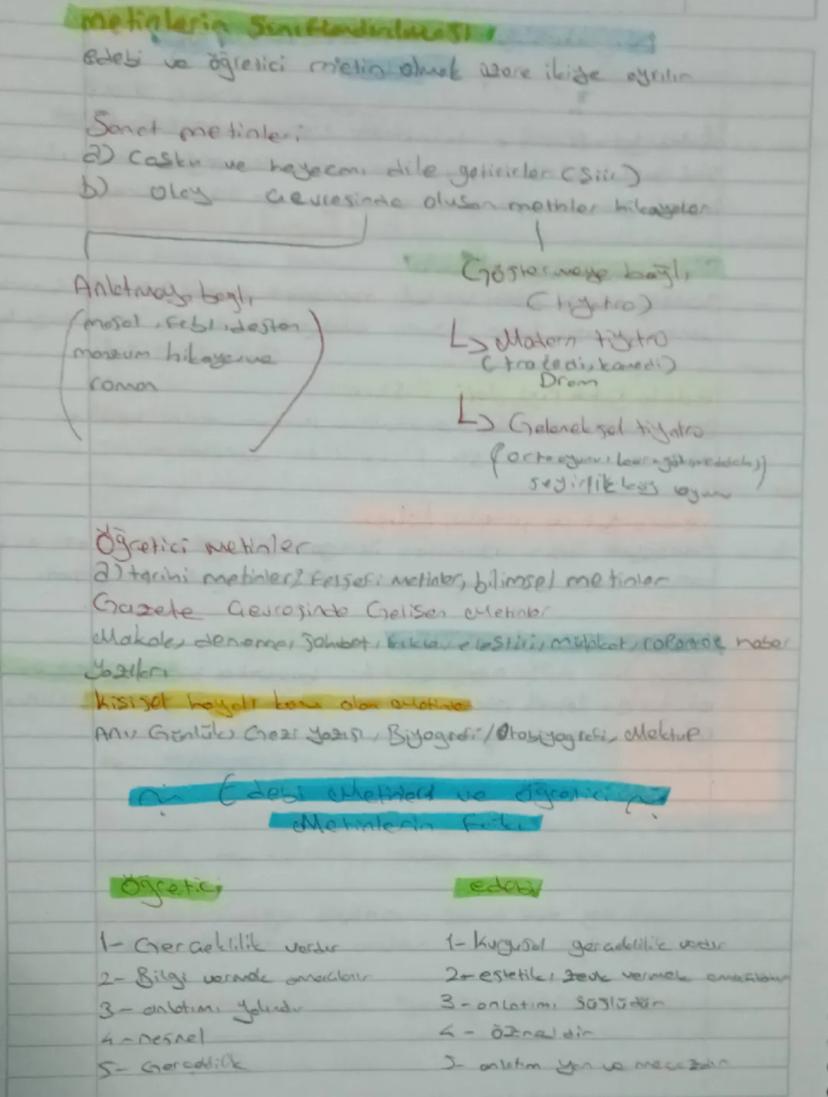 metinlerin Sınıflandırılması
edebi ve öğretici metin olmak üzere ikiye ayrılır
Sanat metinleri
a) Coşku ve heyecanı dile getirirler (Şiir)
b) olay çevresinde oluşan metinler hikayeler
Anlatmaya bağlı
(masal, fabl, destan
manzum hikaye ve
roman
Göstermeye bağlı
(tiyatro)
↳ Modern tiyatro
(trajedi, komedi)
Dram
↳ Geleneksel tiyatro
(orta oyunu,
seyirlik köy oyunu
Öğretici metinler
a) tarihi metinler, felsefi metinler, bilimsel metinler
Gazete Çevresinde Gelişen Metinler
Makale, deneme, sohbet, fıkra, eleştiri, mülakat, röportaj haber
yazıları
kişisel hayatı konu alan metinler
Anı, Günlük, Gezi yazısı, Biyografi/Otobiyografi, Mektup
Edebi Metinlerd ve öğretici
Metinlerin Farkı
Öğretici
1- Gerçeklilik vardır
2- Bilgi vermek amaçlanır
3- anlatımı yalındır
4- nesnel
5- Gerçeklik
edebi
1- kurgusal gerçeklilik vardır
2- estetik, zevk vermek amaçlanır
3- anlatımı süslüdür
4- özneldir
5- anlatım yan ve mecazdır